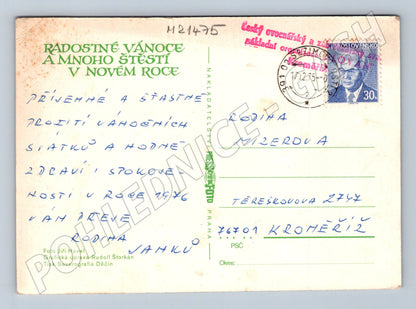 M21475
RADOSTNÉ VÁNOCE
A MNOHO ŠTĚSTÍ
V NOVÉM ROCE
PŘÍJEMNÉ A ŠŤASTNÉ
PROŽITÍ VÁNOČNÍCH
SVÁTKŮ A HODNĚ
ZDRAVÍ I SPOKOJE-
NOSTI V ROCE 1976
VÁM PŘEJE
RODINA
JANKŮ
Foto Jiří Havel
Grafická úprava Rudolf Starkån
Tisk Severografia Děčín
NAKLADATELSTVÍ
PRAHA
Český ovocnářský a
základní
30h
RODINA
MIZEROVA
TĚREŠKOVOVA 2747
76701 KROMĚŘÍŽ
PSČ
Okres:
POHLEDNICE